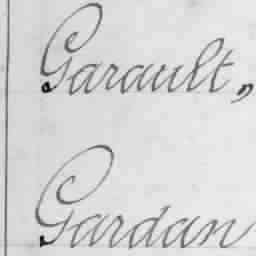 Garault,,
Gardan